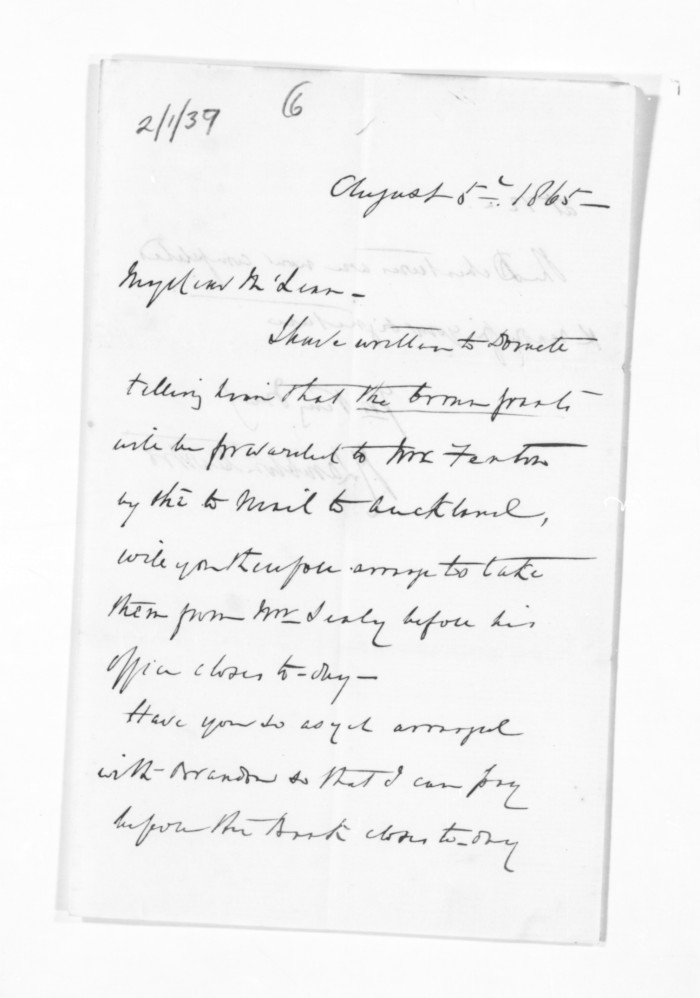 2/1/39
6
August 5th. 1865-
My dear McLean-
I have written to Domett
telling him that the Crown grants
will be forwarded to Mr Fenton
by the to Mail to Auckland,
will you therefore arrange to take
them from Mr Sealy before his
office closes to-day-
Have you so as yet arranged
with Brandon so that I can pay
before the Bank closes to-day